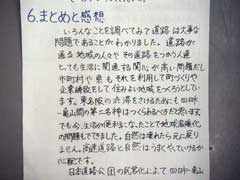 6.まとめと感想
いろんなことを調べてみて道路は大事な
問題であることがわかりました。道路が
通る地域の人々やその道路をつかう人達
とても生活に関連する関心が高い問題だし
市町村や県もそれを利用して町づくりや
企業誘致をして住みよい地域をつくろうとしてい
ます。東名阪の渋滞をさけるためにも四日市
-亀山間の第二名神はつくられるべきだと思います。
でも今、生活が便利になったことで地球温暖化
の問題もでてきました。自然は壊れたら元に戻り
ません。高速道路と自然はうまくやっていけるか
心配です。
日本道路公団の民営化によって四日市-亀山